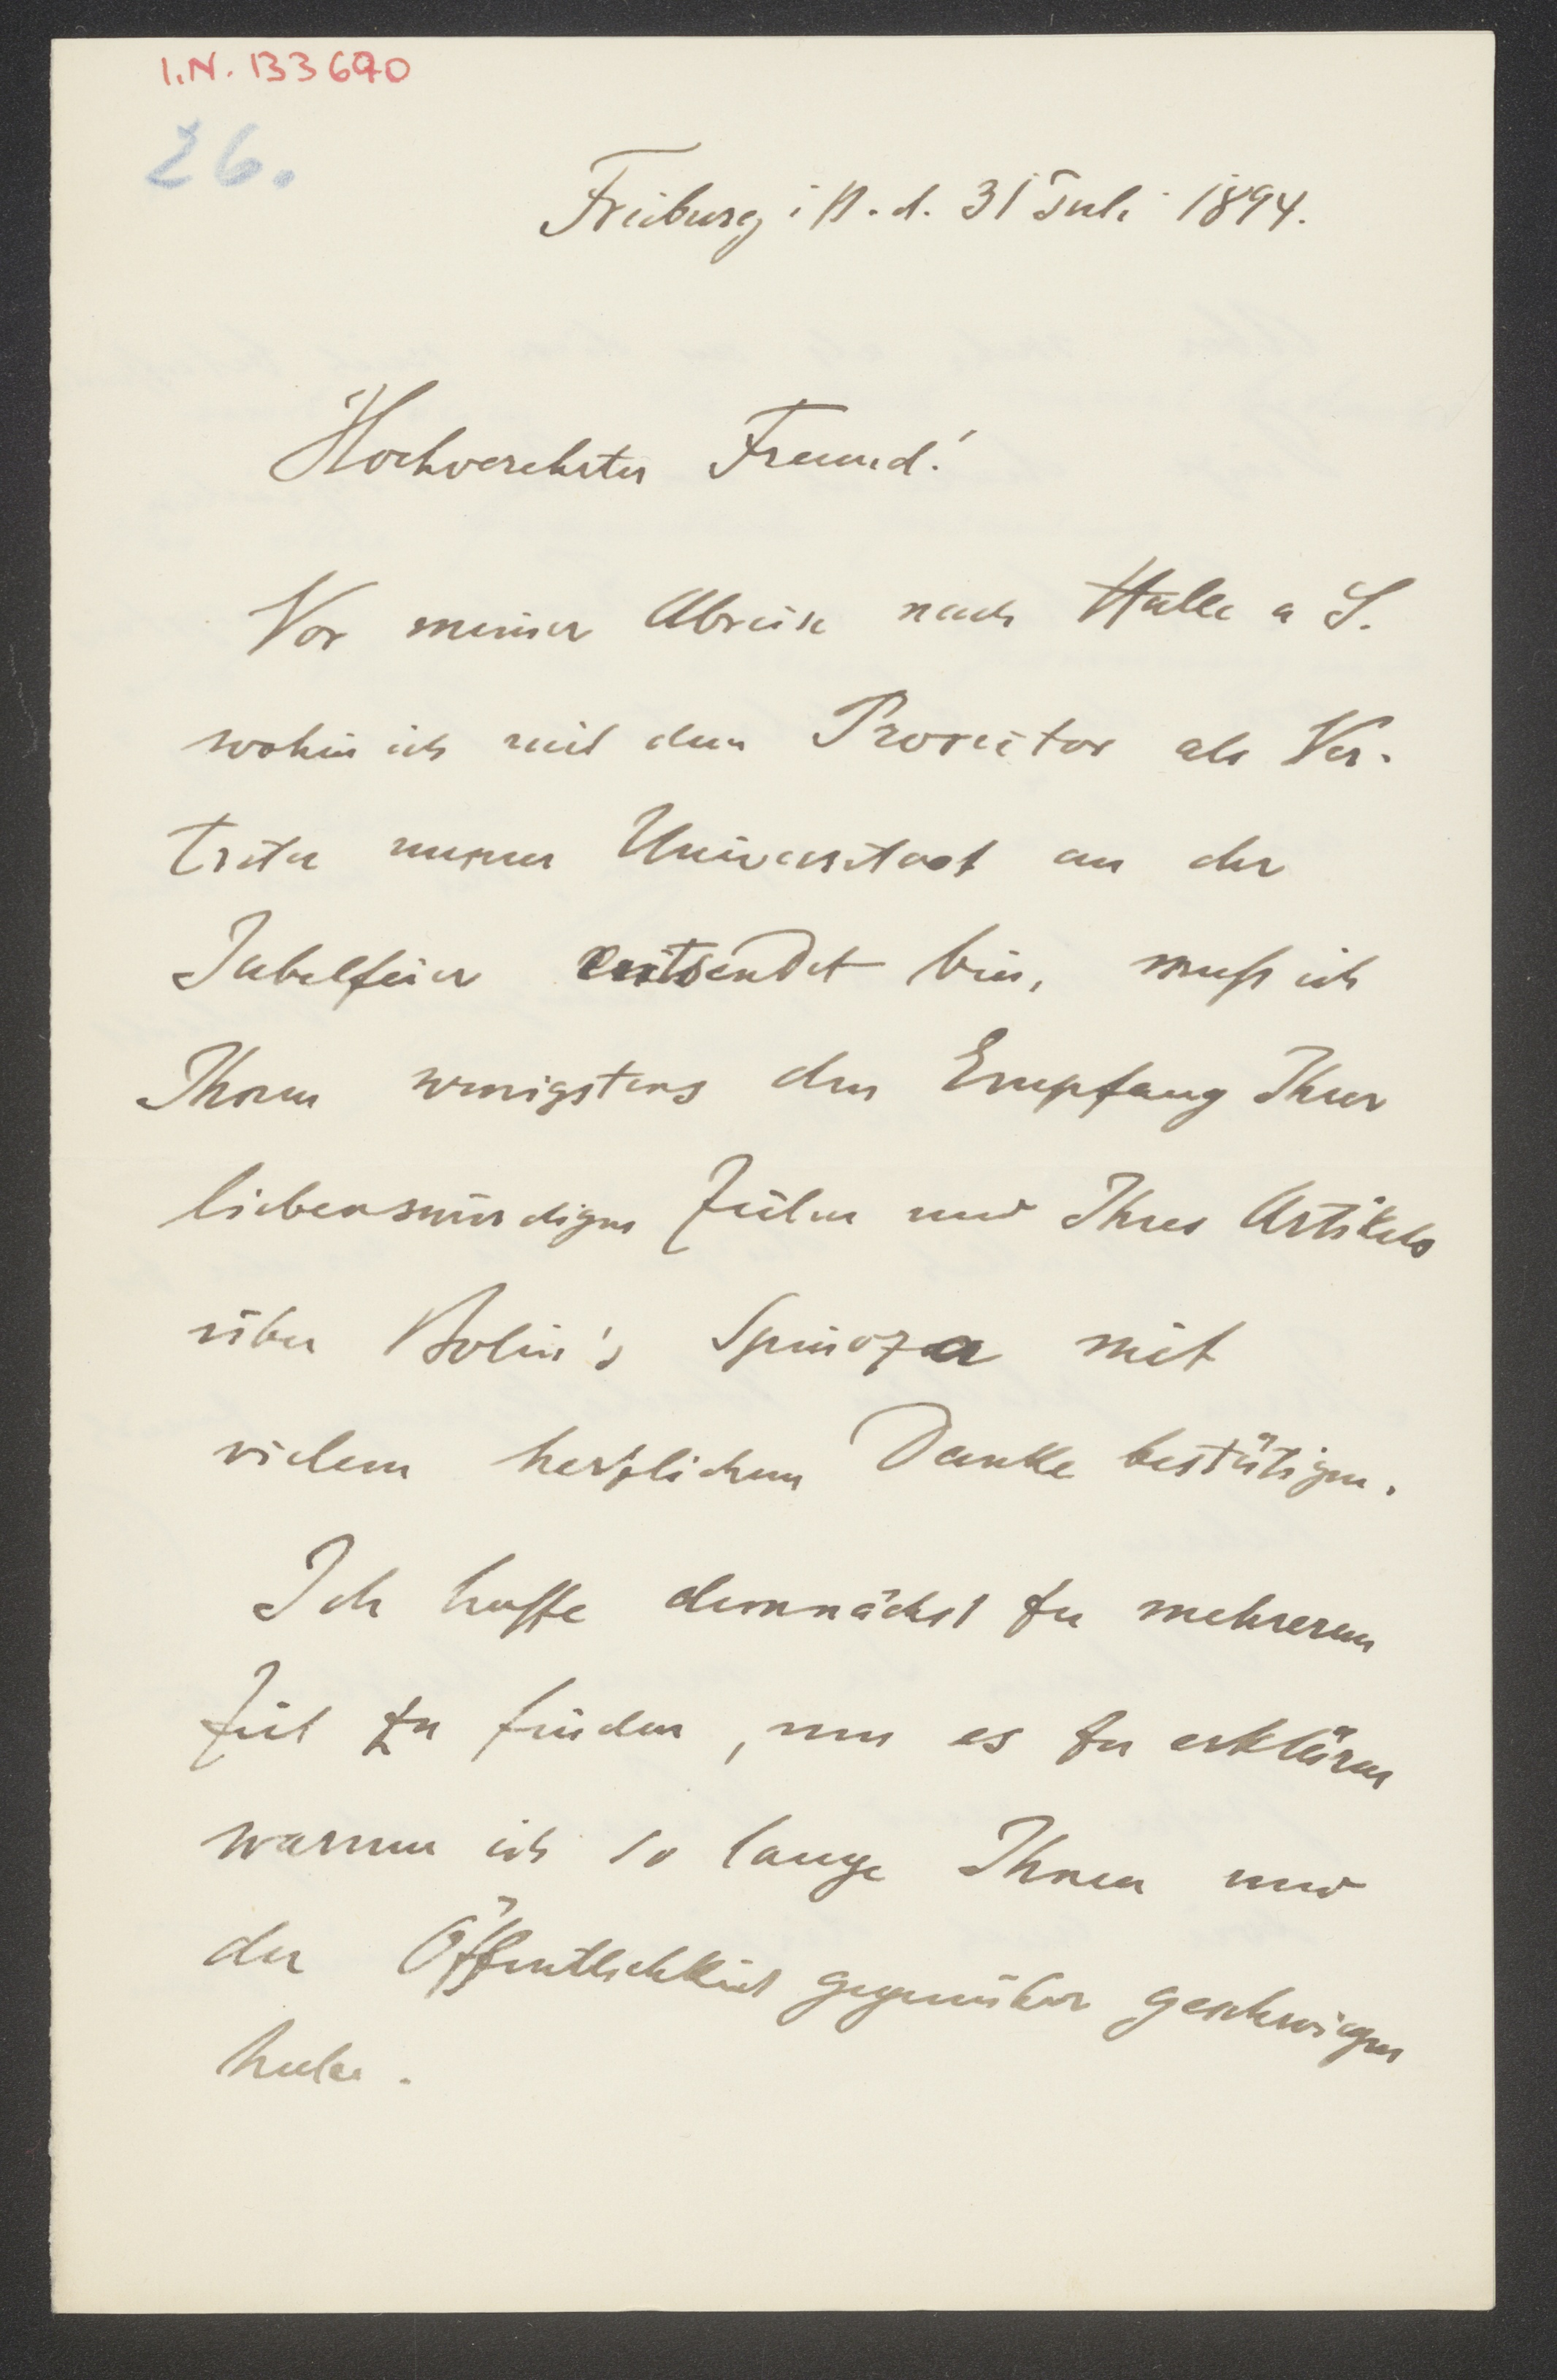 I.N. 133690
26.
Freiburg i B. d. 31 Juli 1894.
Hochverehrter Freund!
Vor meiner Abreise nach Halle a S.
wohin ich mit dem Prorector als Ver-
treter unserer Universitaet an der
Jubelfeier entsendet bin, muß ich
Ihnen wenigstens den Empfang Ihrer
liebenswürdigen Zeilen und Ihres Artikels
über Bolin's Spinoza mit
vielem herzlichem Danke bestätigen.
Ich hoffe demnächst zu mehrerem
Zeit zu finden, um es zu erklären
warum ich so lange Ihnen und
der Öffentlichkeit gegenüber geschwiegen
habe.